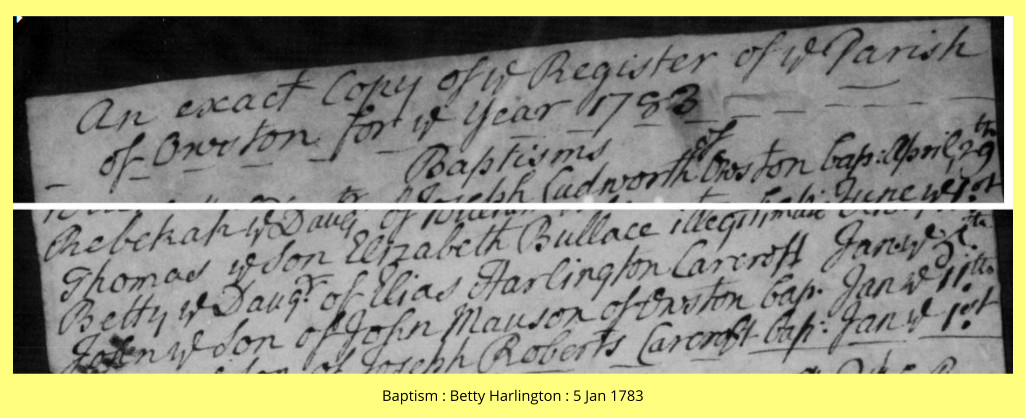 An exact Copy of ye Register of ye Parish
of Owston for ye Year 1783
Baptisms
of Joseph Cudworth of Owston bap: April 29th
Rebekah ye Daugr of June ye 1st
Thomas ye Son Elizabeth Bullace illegitimate
Betty ye Daugr of Elias Harlington Carcroft Jan ye 5th
John ye Son of John Mauson of Owston bap: Jan ye 11th
Son of Joseph Roberts Carcroft bap: Jan ye 1st
Baptism : Betty Harlington : 5 Jan 1783